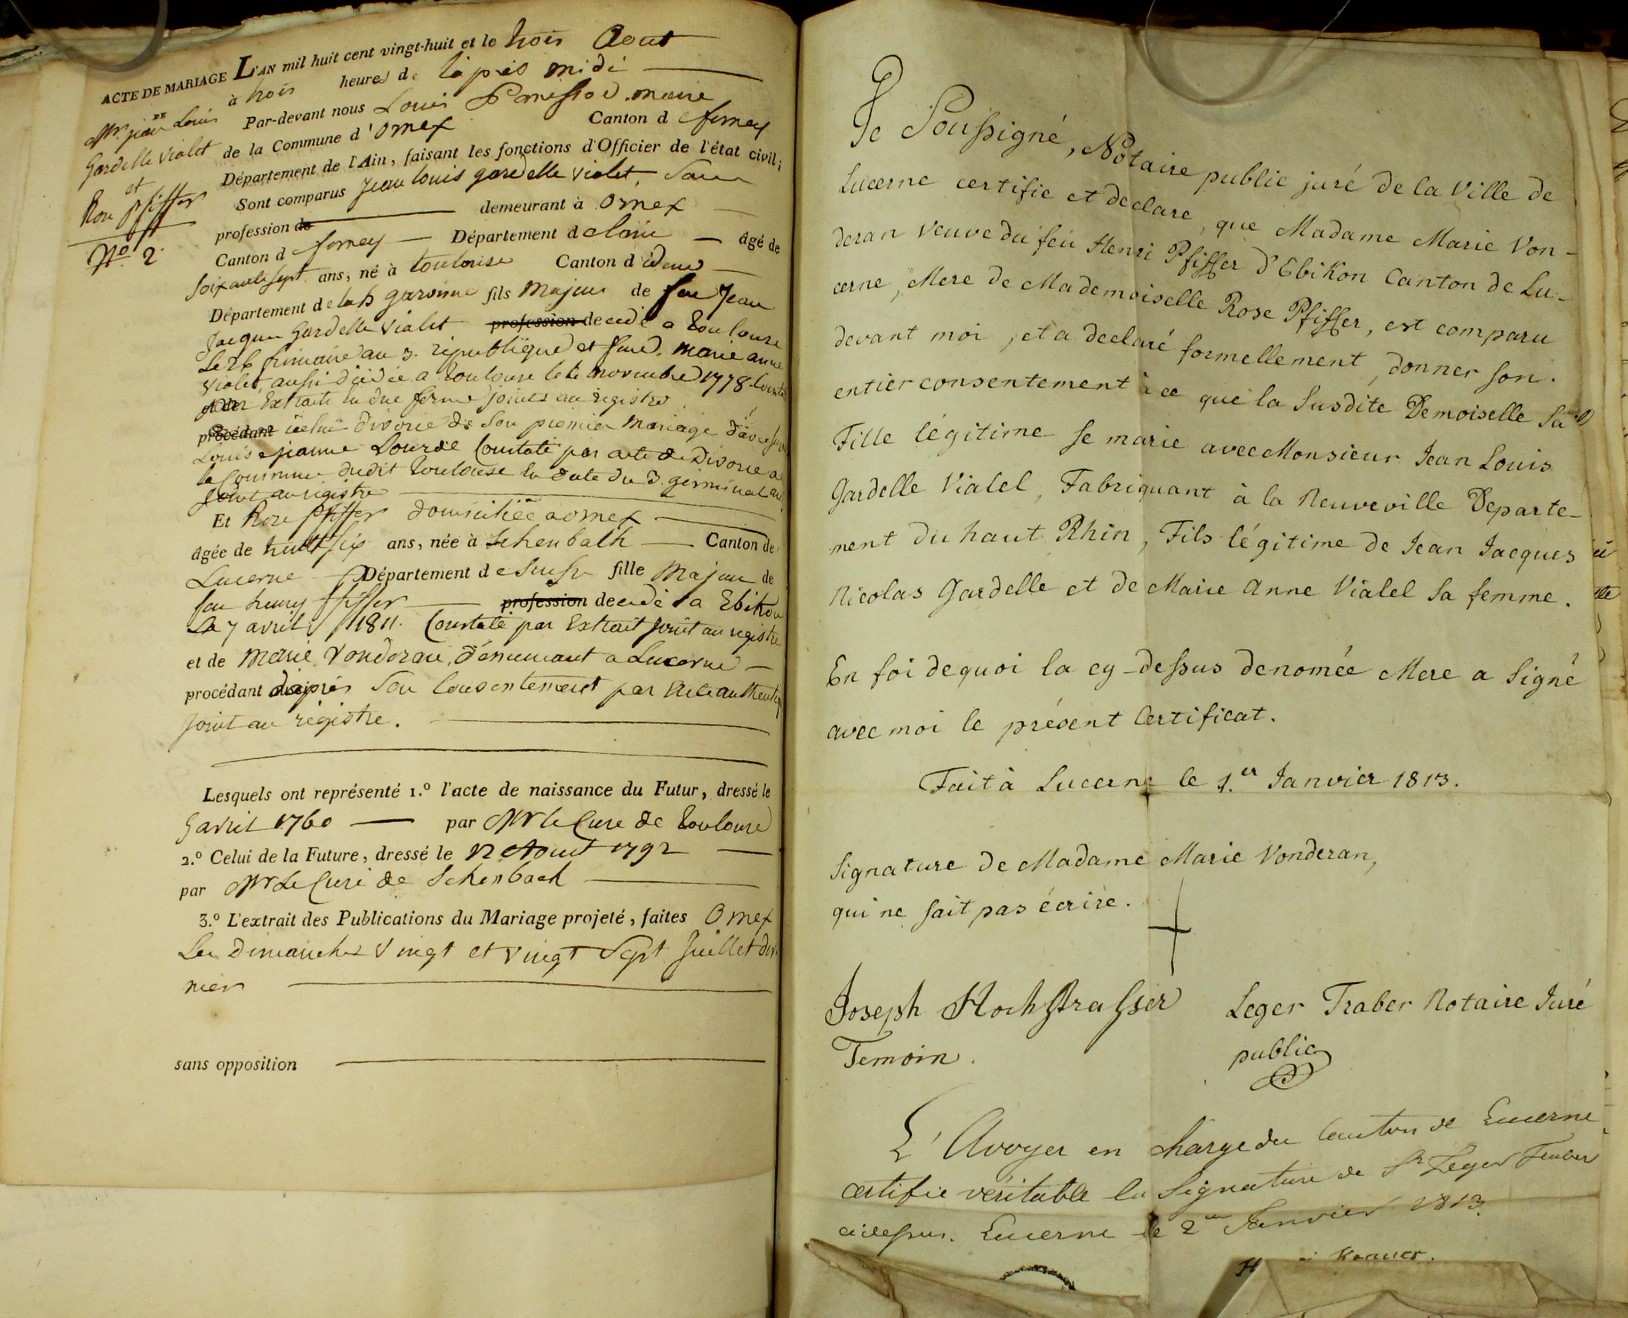 ACTE DE MARIAGE L'AN mil huit cent vingt-huit et le trois Aout
à trois heures de l'après midi
DE
Mr. jean Louis
Gardelle Violet
et
Rose pfiffer
No. 2.
Par-devant nous Louis maire
de la Commune d'ornex Canton d ferney
Département de l'Ain, faisant les fonctions d'Officier de l'état civil;
Sont comparus Jean louis gardelle violet, Sans
profession de demeurant à ornex
Canton d ferney Département de l'ain âgé de
soixante sept ans, né à toulouse Canton d idem
Département de la h garonne fils Majeur de feu Jean
Jacques Gardelle Vialet profession decedé a toulouse
Le 26 frimaire an 3. république et feue marie anne
Violet aussi décédée a toulouse le novembre 1778
Extraits en due forme joints au registre
procédant divorcé de Son premier Mariage d'avec
Louise jeanne constaté par acte de Divorce a
la Commune dudit toulouse en date du 3 germinal an
joint au registre
Et Rose pfiffer domiciliée a ornex
âgée de trente six ans, née à Schenbach Canton de
Lucerne Département de Suisse fille Majeure de
feu henry pfiffer profession decedé a Ebikon
Le 7 avril 1811. Constaté par Extrait joint au registre
et de Marie Vonderan, demeurant a Lucerne
procédant d'après Son Consentement par acte authentiq
joint au régistre.
Lesquels ont représenté 1.º l'acte de naissance du Futur, dressé le
5 avril 1760 par Mr le Cure de toulouse
2.º Celui de la Future, dressé le 12 Aout 1792
par Mr Le Curé de Schenbach
3.º L'extrait des Publications du Mariage projeté, faites Ornex
Les Dimanches Vingt et vingt Sept Juillet der
nier
sans opposition
Je Soussigné, Notaire public juré de la Ville de
Lucerne certifie et declare, que Madame Marie Von-
deran Veuve du feu Henri Pfiffer d'Ebikon Canton de Lu-
cerne, Mere de Mademoiselle Rose Pfiffer, est comparu
devant moi, et a declaré formellement, donner son
entier consentement à ce que la Susdite Demoiselle Sa
Fille légitime se marie avec Monsieur Jean Louis
Gardelle Vialel, Fabriquant à la Neuveville Departe-
ment du haut Rhin, Fils légitime de Jean Jacques
Nicolas Gardelle et de Marie Anne Vialel sa femme.
En foi de quoi la cy-dessus denomée Mere a Signé
avec moi le présent Certificat.
Fait à Lucerne le 1.er Janvier 1813.
Signature de Madame Marie Vonderan,
qui ne sait pas écrire.
Joseph Hochstrasser
Temoin.
Leger Traber Notaire Juré
public
L'Avoyer en charge du Canton de Lucerne
certifie véritable la Signature de Sr Leger Traber
cidessus. Lucerne le 2 Janvier 1813.